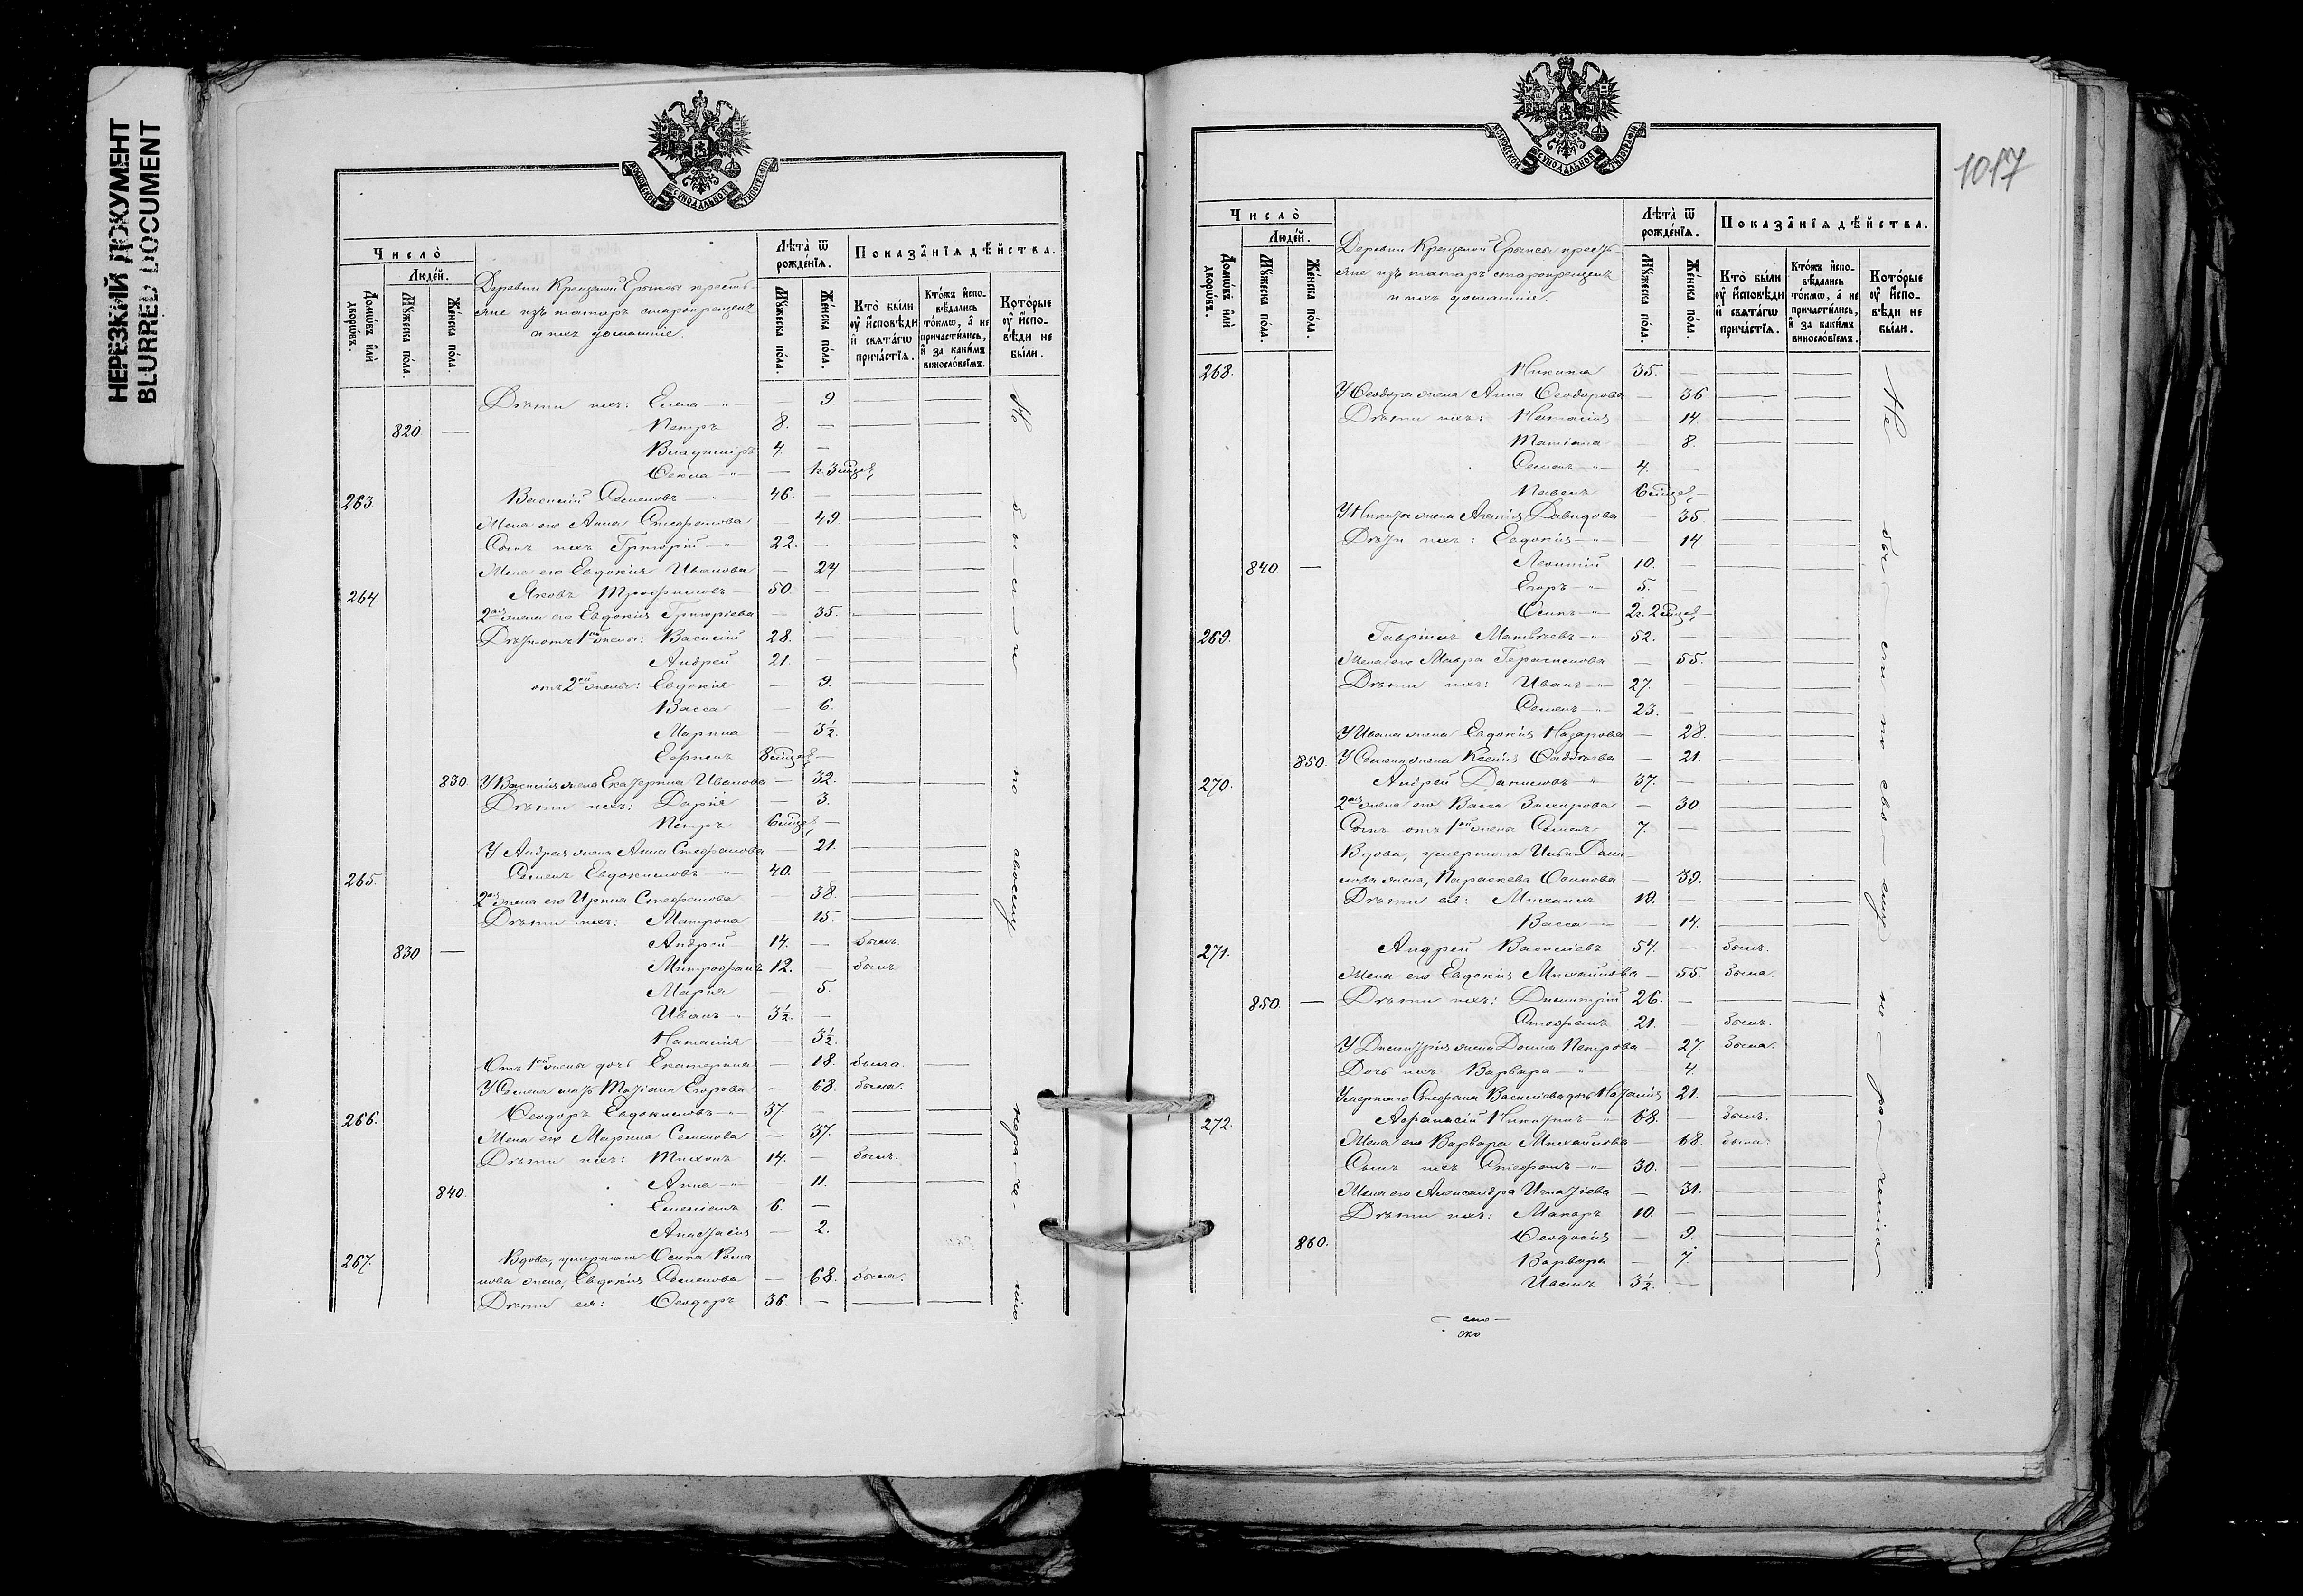 НЕРЕЗКИЙ ДОКУМЕНТ
BLURRED DOCUMENT
МОСКОВСКОЙ СѴНОДАЛЬНОЙ ТИПОГРАФІИ
Число̀
Люде́й.
Домѡ́въ и҆лѝ дворѡ́въ.
Мꙋ́жеска по́ла.
Же́нска по́ла.
Деревни Крещеной Ерыксы кресть-
яне изъ татаръ старокрещенъ
и ихъ домашніе.
Лѣ́та ѿ рожде́нїѧ.
Мꙋ́жеска по́ла.
Же́нска по́ла.
Показа̂нїѧ дѣ́йства.
Кто̀ бы́ли ᲂу҆ и҆́сповѣди и҆ свѧта́гѡ прича́стїѧ.
Кто́жъ и҆спо- вѣ́дались то́кмѡ, а҆ не причасти́лись, и҆ за каки́мъ виносло́вїемъ.
Кото́рые ᲂу҆ и҆спо- вѣди не бы́ли.
Дѣти ихъ: Елена 9.
820 — Петръ 8. —
Владиміръ 4. —
Ѳекла — 1 г. 3 мѣсяц.
263. Василій Семеновъ 46. —
Жена его Анна Стефанова — 49.
Сынъ ихъ Григорій 22. —
Жена его Евдокія Иванова — 24
264 Яковъ Трофимовъ 50. —
2ая жена его Евдокія Григоріева — 35.
Дѣти отъ 1ой жены: Василій 28. —
Андрей 21. —
отъ 2ой жены: Евдокія — 9.
Васса — 6.
Марина — 3½.
Ефремъ 8 мѣсяц. —
830. У Василія жена Екатерина Иванова — 32.
Дѣти ихъ: Дарія — 3.
Петръ 6 мѣсяц. —
У Андрея жена Анна Стефанова — 21.
265. Семенъ Евдокимовъ 40. —
2ая жена его Ирина Стефанова — 38.
Дѣти ихъ: Матрона — 15.
Андрей 14. — былъ.
830 — Митрофанъ 12. — былъ
Марія — 5.
Иванъ 3½. —
Наталія — 3½.
Отъ 1ой жены дочь Екатерина — 18. была.
У Семена мать Татіана Егорова — 68. была.
266. Ѳеодоръ Евдокимовъ 37. —
Жена его Марина Семенова — 37.
Дѣти ихъ: Тихонъ 14. — былъ.
840. Анна — 11.
Емеліанъ 6. —
Анастасія — 2.
267. Вдова, умершаго Осипа Рома
нова жена, Евдокія Семенова — 68. была.
Дѣти ея: Ѳеодоръ 36. —
Не были по своему нерачению.
1017
МОСКОВСКОЙ СѴНОДАЛЬНОЙ ТИПОГРАФІИ
Число̀
Люде́й.
Домѡ́въ и҆лѝ дворѡ́въ.
Мꙋ́жеска по́ла.
Же́нска по́ла.
Деревни Крещеной Ерыксы кресть-
яне изъ татаръ старокрещенъ
и ихъ домашніе.
Лѣ́та ѿ рожде́нїѧ.
Мꙋ́жеска по́ла.
Же́нска по́ла.
Показа̂нїѧ дѣ́йства.
Кто̀ бы́ли ᲂу҆ и҆́сповѣди и҆ свѧта́гѡ прича́стїѧ.
Кто́жъ и҆спо- вѣ́дались то́кмѡ, а҆ не причасти́лись, и҆ за каки́мъ виносло́вїемъ.
Кото́рые ᲂу҆ и҆спо- вѣди не бы́ли.
268. Никита 35. —
У Ѳеодора жена Анна Ѳеодорова — 36.
Дѣти ихъ: Наталія — 14.
Татіана — 8.
Семенъ 4. —
Павелъ 6 мѣсяц. —
У Никиты жена Агафія Давидова — 35.
Дѣти ихъ: Евдокія — 14.
840 — Леонтій 10. —
Егоръ 5. —
Осипъ 2 г. 2 мѣсяц. —
269. Гавріилъ Матвѣевъ 52. —
Жена его Мавра Герасимова — 55.
Дѣти ихъ: Иванъ 27. —
Семенъ 23. —
У Ивана жена Евдокія Назарова — 28.
850. У Семена жена Ксенія Ѳаддѣева — 21.
270. Андрей Даниловъ 37. —
2ая жена его Васса Захарова — 30.
Сынъ отъ 1ой жены Семенъ 7. —
Вдова, умершаго Ильи Дани-
лова жена, Параскева Осипова — 39.
Дѣти ея: Михаилъ 10. —
Васса — 14.
271. Андрей Василіевъ 54. — былъ.
Жена его Евдокія Михайлова — 55. была.
850. — Дѣти ихъ: Димитрій 26. —
Стефанъ 21. — былъ.
У Димитрія жена Домна Петрова — 27. была.
Дочь ихъ Варвара — 4.
Умершаго Стефана Василіева дочь Наталія 21.
272. Аѳанасій Никитинъ 68. — былъ.
Жена его Варвара Михайлова — 68. была.
Сынъ ихъ Стефанъ 30. —
Жена его Александра Игнатіева — 31.
Дѣти ихъ: Макаръ 10. —
860. Ѳеодосія — 9.
Варвара — 7.
Иванъ 3½. —
Не были по своему нерачения